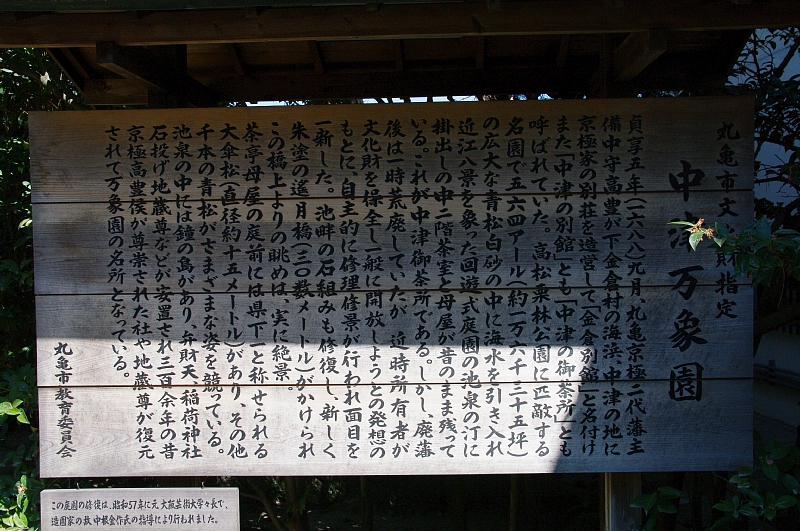 丸亀市文 財指定
中津万象園
貞享五年(一六八八)元月、丸亀京極二代藩主
備中守高豊が下金倉村の海浜、中津の地に
京極家の別荘を造営して「金倉別館」と名付け
また「中津の別館」とも「中津の御茶所」とも
呼ばれていた。高松栗林公園に匹敵する
名園で五六四アール(約一万六千三十五坪)
の広大な青松白砂の中に海水を引き入れ
近江八景を象った回遊式庭園の池泉の汀に
掛出しの中二階茶室と母屋が昔のまま残って
いる。これが中津御茶所である。しかし、廃藩
後は一時荒廃していたが 近時所有者が
文化財を保全し一般に開放しようとの発想の
もとに、自主的に修理修景が行われ面目を
一新した。池畔の石組みも修復し、新しく
朱塗の邀月橋(三〇数メートル)がかけられ
この橋上よりの眺めは、実に絶景。
茶亭母屋の庭前には県下一と称せられる
大傘松(直径約十五メートル)があり、その他
千本の青松がさまざまな姿を競っている。
池泉の中には鐘の島があり、弁財天、稲荷神社
石投げ地蔵尊などが安置され三百余年の昔
京極高豊侯が尊崇された社や地蔵尊が復元
されて万象園の名所となっている。
丸亀市教育委員会
この庭園の修復は、昭和57年に元 大阪芸術大学々長で、
造園家の故 中根金作氏の指導により行われました。